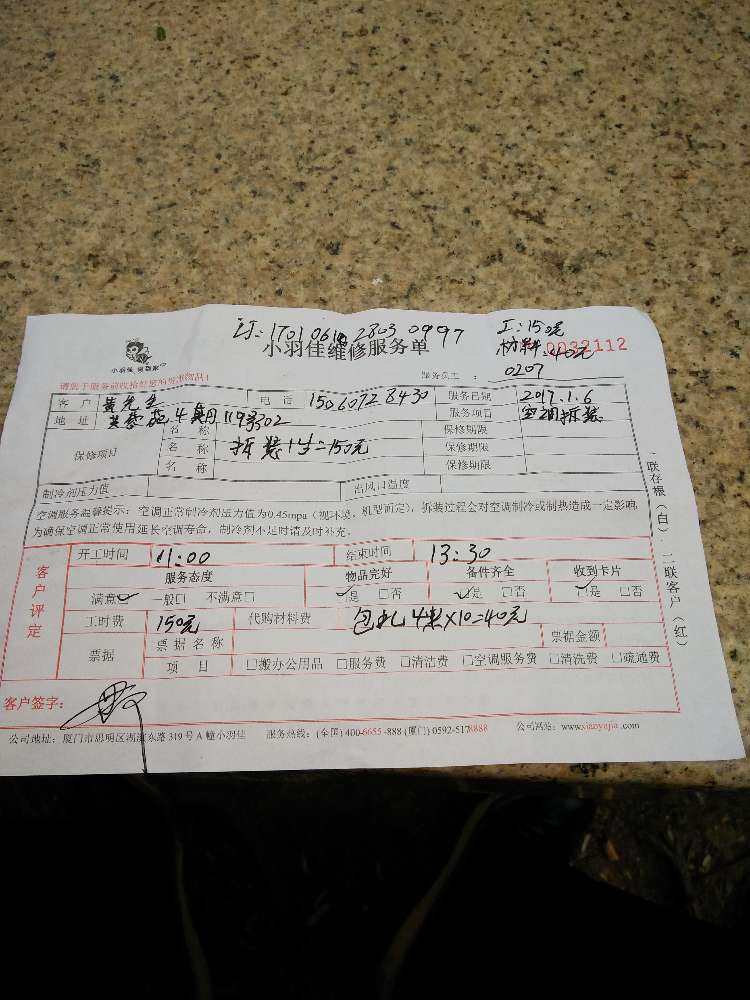 订:170106102803 0997
工:150元
小羽佳维修服务单
材料:40元
0032112
小羽佳 家政家
服务员工:
0207
请您于服务前收拾好您的贵重物品!
客 户 黄先生 电 话 15060728430 服务日期 2017.1.6
地 址 芙蓉苑4期119号302 服务项目 空调拆装
保修项目
名 称 保修期限
名 称 拆装1台=150元 保修期限
名 称 保修期限
制冷剂压力值 出风口温度
空调服务温馨提示:空调正常制冷剂压力值为0.45mpa(视环境,机型而定),拆装过程会对空调制冷或制热造成一定影响
为确保空调正常使用延长空调寿命,制冷剂不足时请及时补充。
客户评定
开工时间 11:00 结束时间 13:30
服务态度 物品完好 备件齐全 收到卡片
满意☑ 一般□ 不满意□ ☑是 □否 ☑是 □否 ☑是 □否
工时费 150元 代购材料费 包扎4米×10=40元
票据 票据名称 票据金额
项 目 □搬办公用品 □服务费 □清洁费 □空调服务费 □清洗费 □疏通费
客户签字:
公司地址:厦门市思明区湖滨东路319号A幢小羽佳 服务热线:(全国)400-6655-888(厦门)0592-5178888 公司网站:www.xiaoyujia.com
一联存根(白) 二联客户(红)